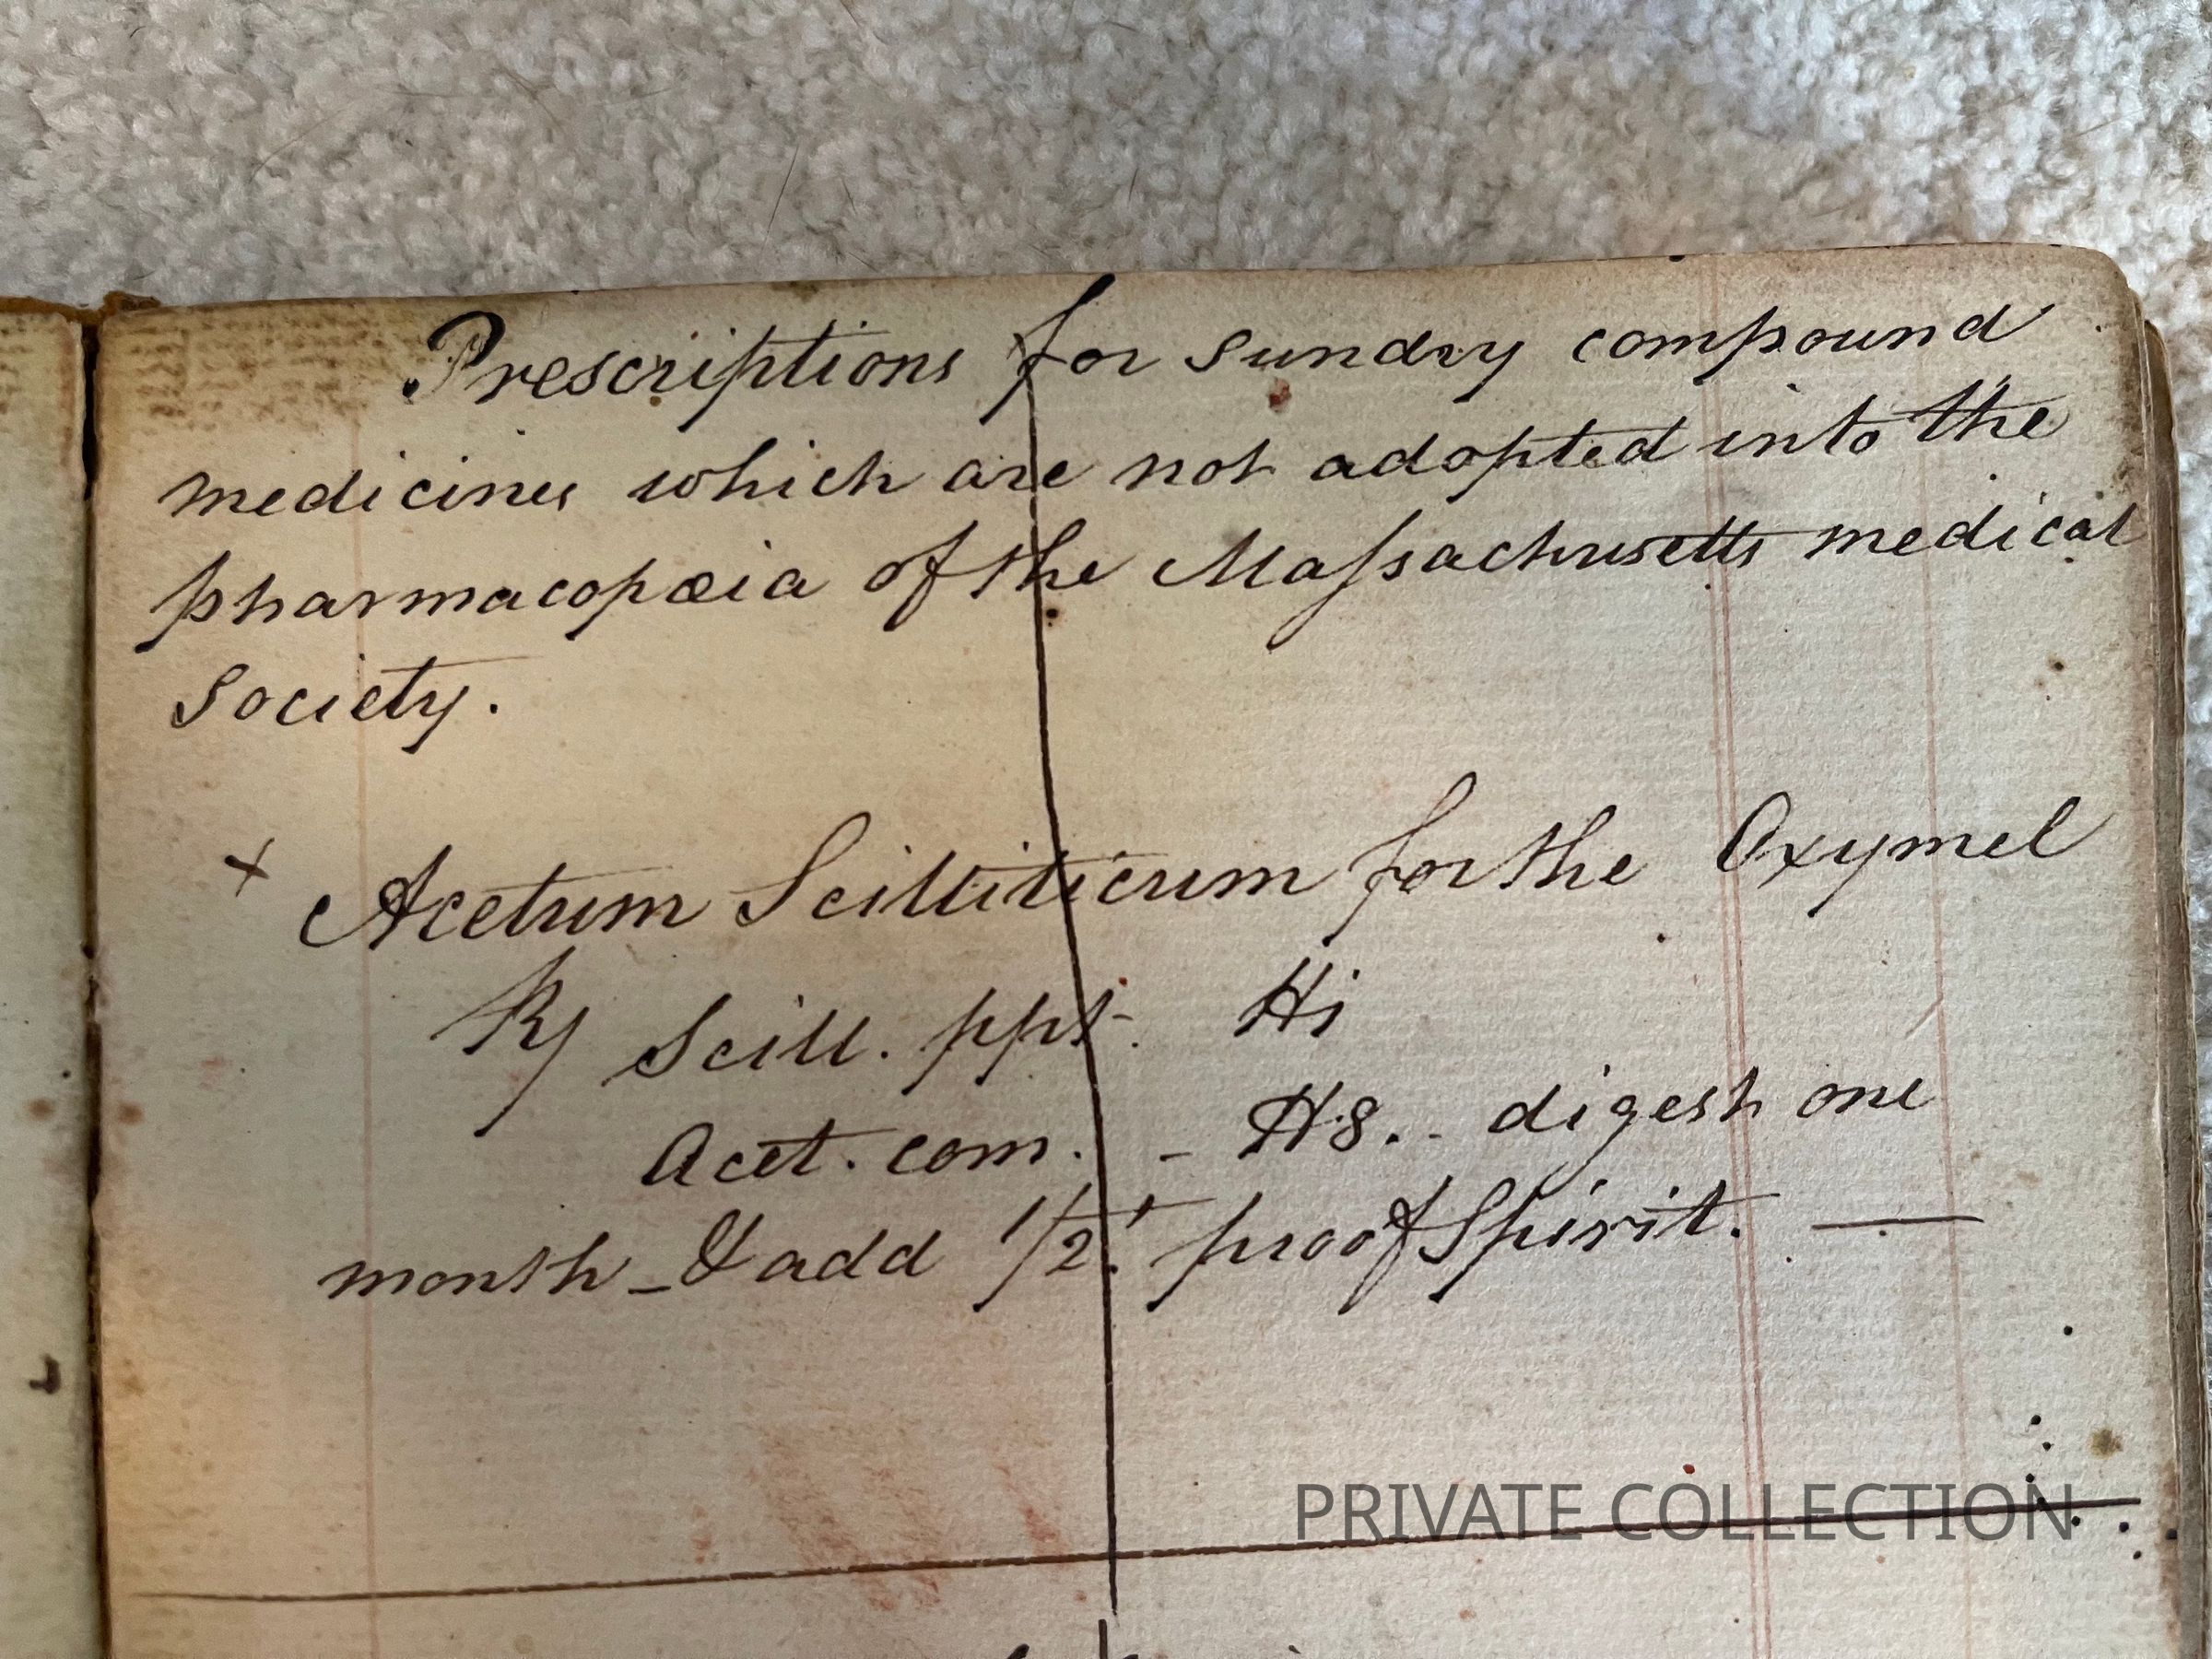 Prescriptions for sundry compound
medicines which are not adopted into the
pharmacopœia of the Massachusetts medical
society.
× Acetum Scilliticum for the Oxymel
℞ Scill. ppt.
Acet. com. - 8. - digest one
month - & add 1/2 proof Spirit. —
PRIVATE COLLECTION